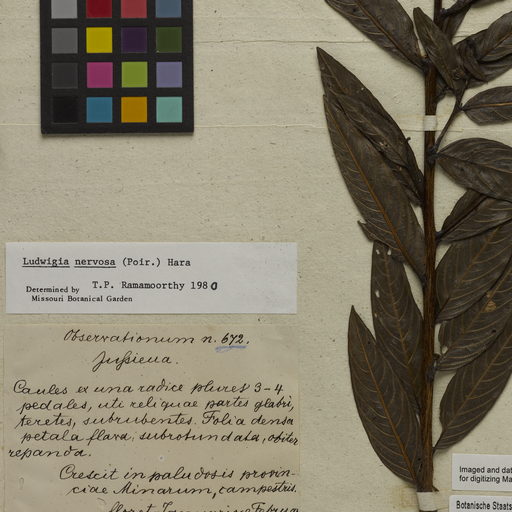 Ludwigia nervosa (Poir.) Hara
Determined by T.P. Ramamoorthy 1980
Missouri Botanical Garden
Observationum n. 672.
Jussieua.
Caules ex una radice plures 3-4
pedales, uti reliquae partes glabri,
teretes, subrubentes. Folia densa
petala flava, subrotundata, obiter
repanda.
Crescit in paludosis provin-
ciae Minarum, campestris.
floret
Imaged and dat
for digitizing Ma
Botanische Staats